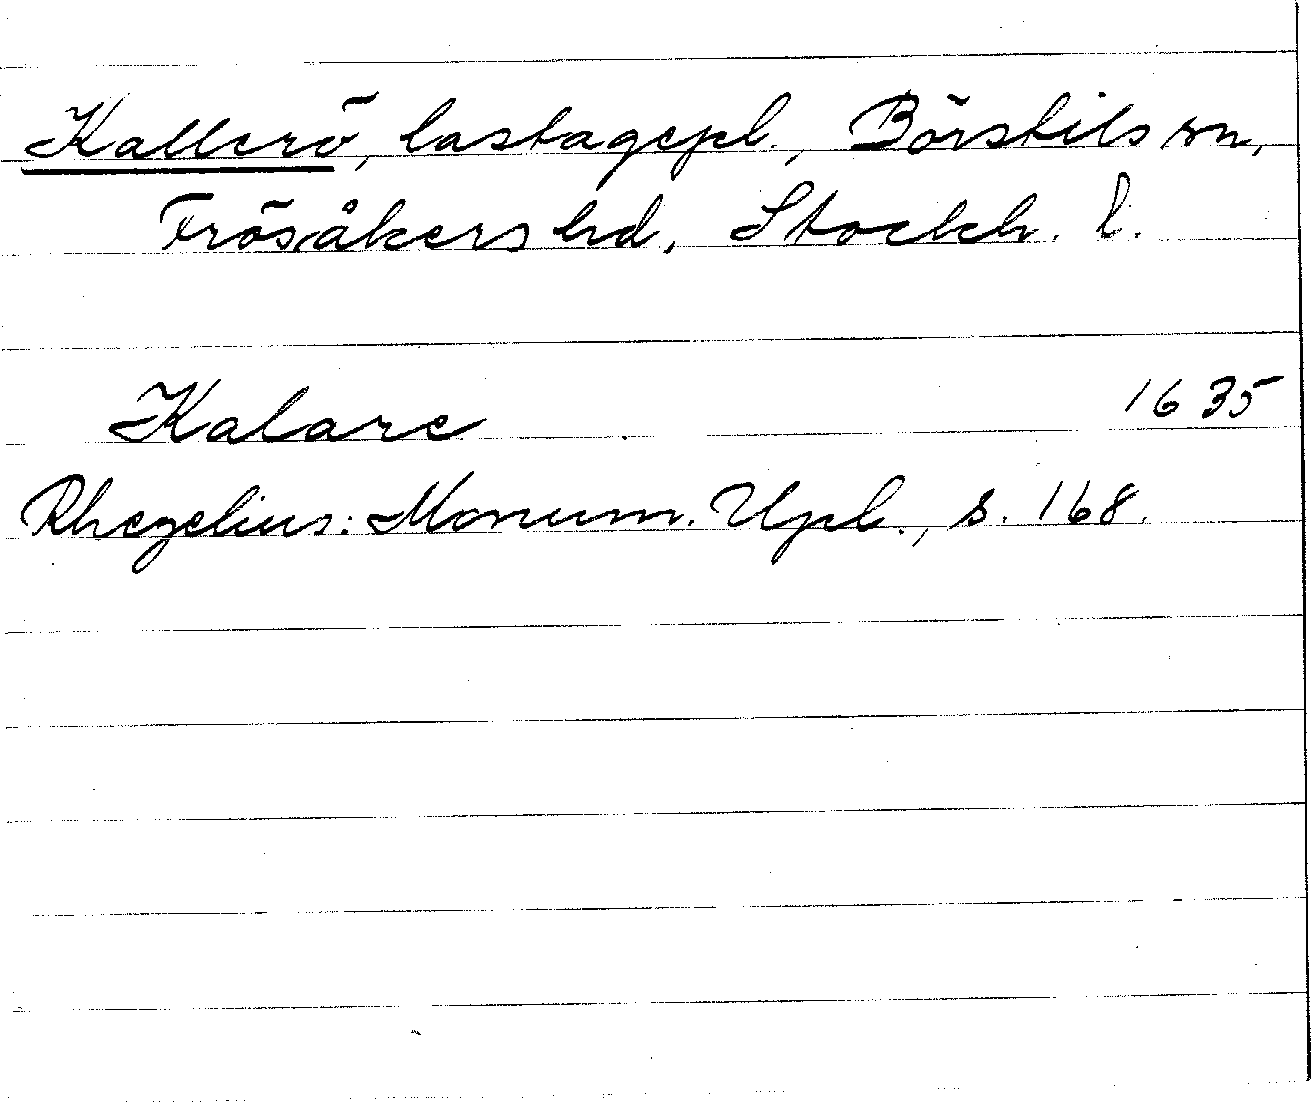 Kallerö, lastagepl., Börstils sn,
Frösåkers hd, Stockh. l.
Kalare 1635
Rhezelius: Monum. Upl., s. 168.